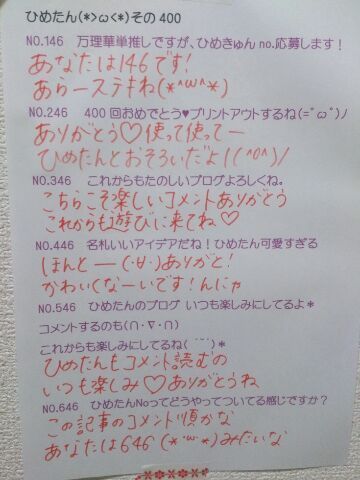 ひめたん(*>ω<*)その400
NO.146 万理華単推しですが、ひめきゅんno.応募します!
あなたは146です!
あらーステキね(*^ω^*)
NO.246 400回おめでとう♥プリントアウトするね(=^ω^)ノ
ありがとう♡使って使ってー
ひめたんとおそろいだよ!(^o^)ノ
NO.346 これからもたのしいブログよろしくね。
こちらこそ楽しいコメントありがとう
これからも遊びに来てね♡
NO.446 名札いいアイデアだね!ひめたん可愛すぎる
ほんとー(・∀・)ありがと!
かわいくなーいです!んにゃ
NO.546 ひめたんのブログ いつも楽しみにしてるよ*
コメントするのも(∩・∇・∩)
これからも楽しみにしてるね(¨)*
ひめたんもコメント読むの
いつも楽しみ♡ありがとうね
NO.646 ひめたんNoってどうやってついてる感じですか?
この記事のコメント順かな
あなたは646(*'ω'*)みたいな